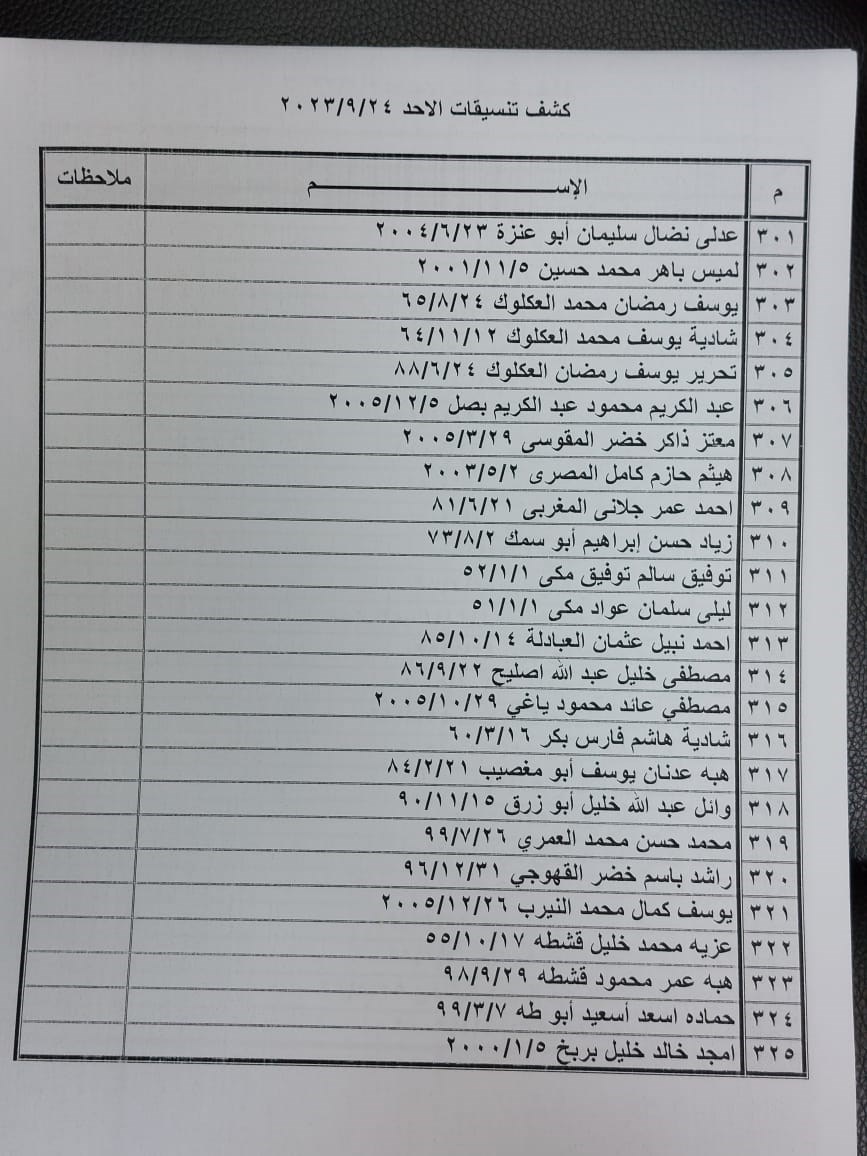 كشف تنسيقات الاحد ٢٠٢٣/٩/٢٤
م الإســـــــــــــــم ملاحظات
٣٠١ عدلى نضال سليمان أبو عنزة ٢٠٠٤/٦/٢٣
٣٠٢ لميس باهر محمد حسين ٢٠٠١/١١/٥
٣٠٣ يوسف رمضان محمد العكلوك ٦٥/٨/٢٤
٣٠٤ شادية يوسف محمد العكلوك ٦٤/١١/١٢
٣٠٥ تحرير يوسف رمضان العكلوك ٨٨/٦/٢٤
٣٠٦ عبد الكريم محمود عبد الكريم بصل ٢٠٠٥/١٢/٥
٣٠٧ معتز ذاكر خضر المقوسى ٢٠٠٥/٣/٢٩
٣٠٨ هيثم حازم كامل المصرى ٢٠٠٣/٥/٢
٣٠٩ احمد عمر جلانى المغربى ٨١/٦/٢١
٣١٠ زياد حسن إبراهيم أبو سمك ٧٣/٨/٢
٣١١ توفيق سالم توفيق مكى ٥٢/١/١
٣١٢ ليلى سلمان عواد مكى ٥١/١/١
٣١٣ احمد نبيل عثمان العبادلة ٨٥/١٠/١٤
٣١٤ مصطفى خليل عبد الله اصليح ٨٦/٩/٢٢
٣١٥ مصطفي عائد محمود ياغي ٢٠٠٥/١٠/٢٩
٣١٦ شادية هاشم فارس بكر ٦٠/٣/١٦
٣١٧ هبه عدنان يوسف أبو مغصيب ٨٤/٢/٢١
٣١٨ وائل عبد الله خليل أبو زرق ٩٠/١١/١٥
٣١٩ محمد حسن محمد العمري ٩٩/٧/٢٦
٣٢٠ راشد باسم خضر القهوجي ٩٦/١٢/٣١
٣٢١ يوسف كمال محمد النيرب ٢٠٠٥/١٢/٢٦
٣٢٢ عزيه محمد خليل قشطه ٥٥/١٠/١٧
٣٢٣ هبه عمر محمود قشطه ٩٨/٩/٢٩
٣٢٤ حماده اسعد أسعيد أبو طه ٩٩/٣/٧
٣٢٥ امجد خالد خليل بربخ ٢٠٠٠/١/٥